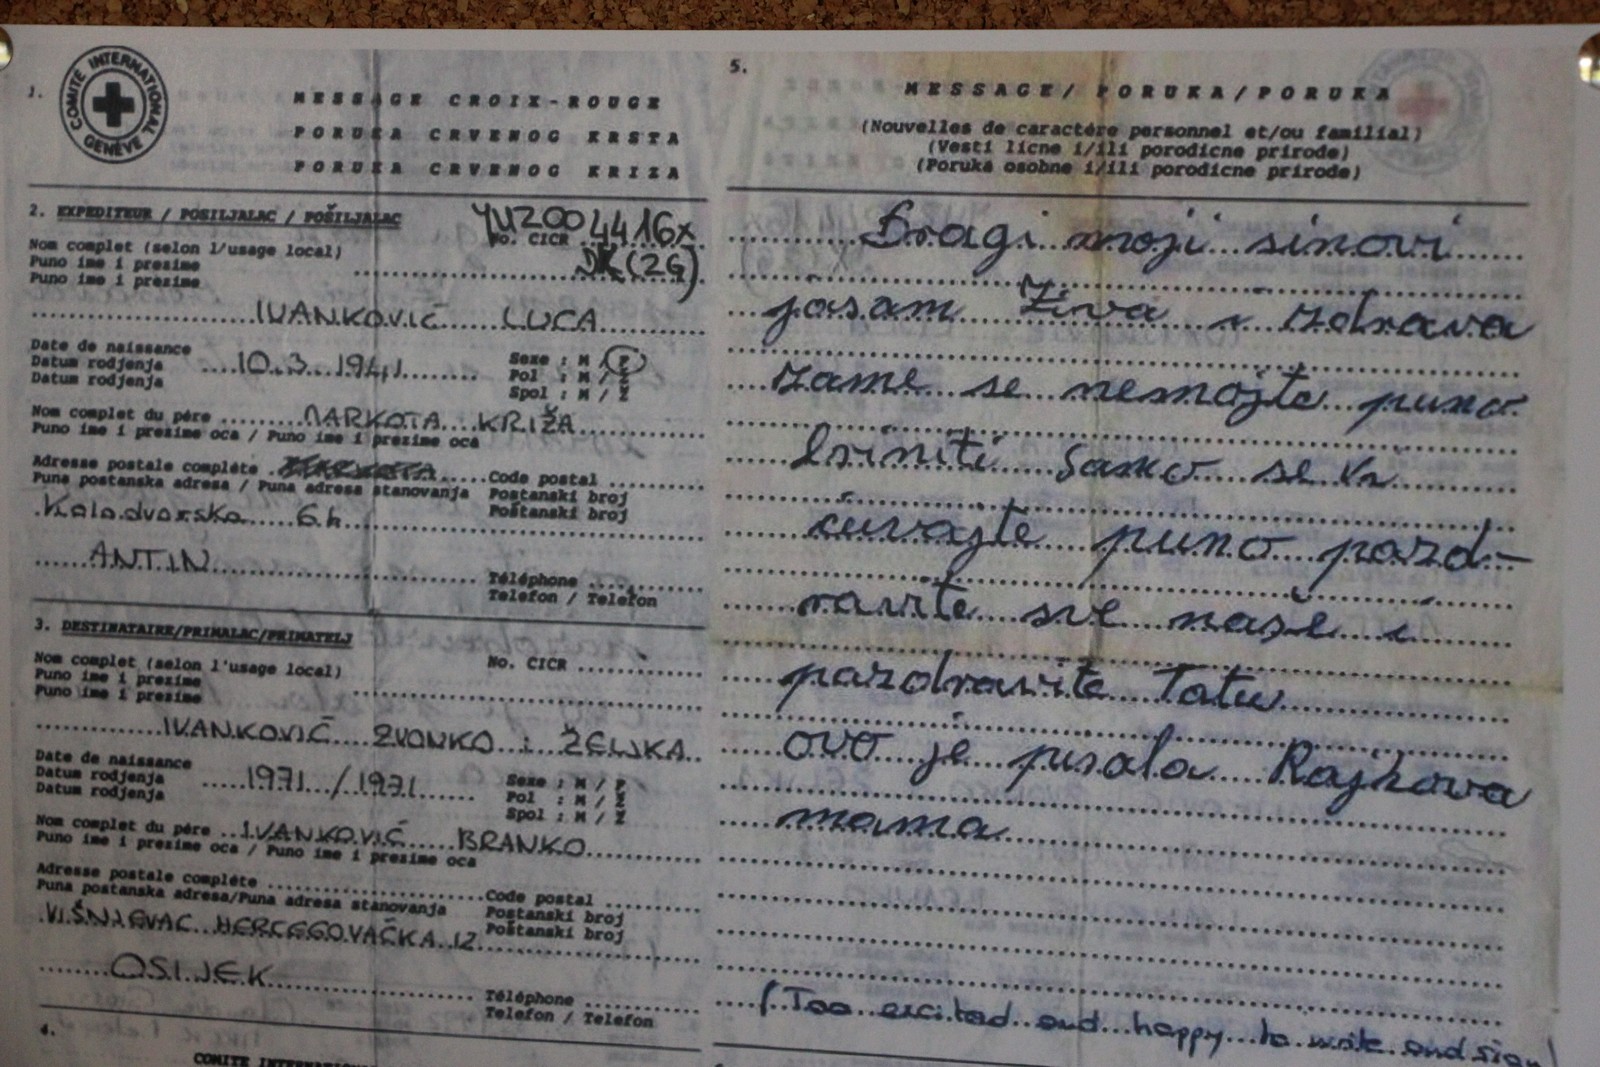 1.
COMITÉ INTERNATIONAL GENÈVE
MESSAGE CROIX-ROUGE
PORUKA CRVENOG KRSTA
PORUKA CRVENOG KRIZA
2. EXPEDITEUR / POSILJALAC / POŠILJALAC
YUZ004416x
Nom complet (selon l/usage local)
No. CICR
Puno ime i prezime
(2G)
Puno ime i prezime
IVANKOVIĆ LUCA
Date de naissance
Datum rodjenja 10.3.1941
Datum rodjenja
Sexe : M / F
Pol : M / Ž
Spol : M / Ž
Nom complet du pére MARKOTA KRIŽA
Puno ime i prezime oca / Puno ime i prezime oca
Adresse postale complète Code postal
Puna postanska adresa / Puna adresa stanovanja Postanski broj
Poštanski broj
Kolodvorska 6.h
ANTIN
Téléphone
Telefon / Telefon
3. DESTINATAIRE/PRIMALAC/PRIMATELJ
Nom complet (selon l'usage local) No. CICR
Puno ime i prezime
Puno ime i prezime
IVANKOVIĆ ZVONKO i ŽELJKA
Date de naissance
Datum rodjenja 1971 / 1971
Datum rodjenja
Sexe : M / F
Pol : M / Ž
Spol : M / Ž
Nom complet du pére IVANKOVIĆ BRANKO
Puno ime i prezime oca / Puno ime i prezime oca
Adresse postale complète Code postal
Puna postanska adresa/Puna adresa stanovanja Postanski broj
Poštanski broj
VIŠNJEVAC HERCEGOVAČKA 12
OSIJEK
Téléphone
Telefon / Telefon
4.
COMITE
5.
MESSAGE/ PORUKA/PORUKA
(Nouvelles de caractére personnel et/ou familial)
(Vesti licne i/ili porodicne prirode)
(Poruka osobne i/ili porodicne prirode)
Dragi moji sinovi
jasam živa i zdrava
zame se nemojte puno
briniti samo se vi
čuvajte puno pozd-
ravite sve naše i
pozdravite Tatu
ovo je pisala Rajkova
mama
(Too excited and happy to write and sign)